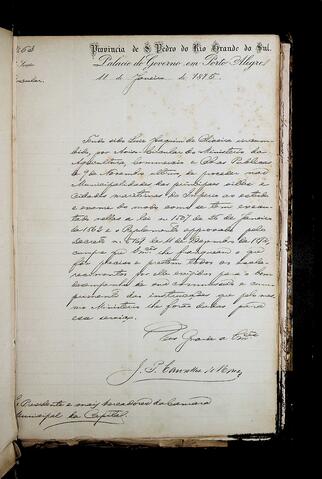 Provincia de S. Pedro do Rio Grande do Sul.
Palacio do Governo em Porto Alegre
11 de Janeiro de 1875.
Tendo sido Luiz Joaquim de Oliveira
bido, por Aviso Circular do Ministerio da
Agricultura, Commercio e Obras Publicas
de 9 de Novembro ultimo, de proceder nas
Municipalidades das principaes villas e
cidades maritimas do Imperio ao estudo
e exame do modo como se tem
tado nellas a Lei n. 1507 de 26 de
de 1862 e o Regulamento approvado pelo
Decreto n. de 11 de Dezembro de 1872,
cumpre que Vmces. lhe franqueem o que
fôr preciso e prestem todos os
recimentos por elle exigidos para o bom
desempenho de sua commissão e
primento das instrucções que pelo
mo Ministerio lhe forão dadas para
esse serviço.
Deos Guarde a Vmces.
J. P. Carvalho de Moraes
Presidente e mais Vereadores da Camara
Municipal da Capital.